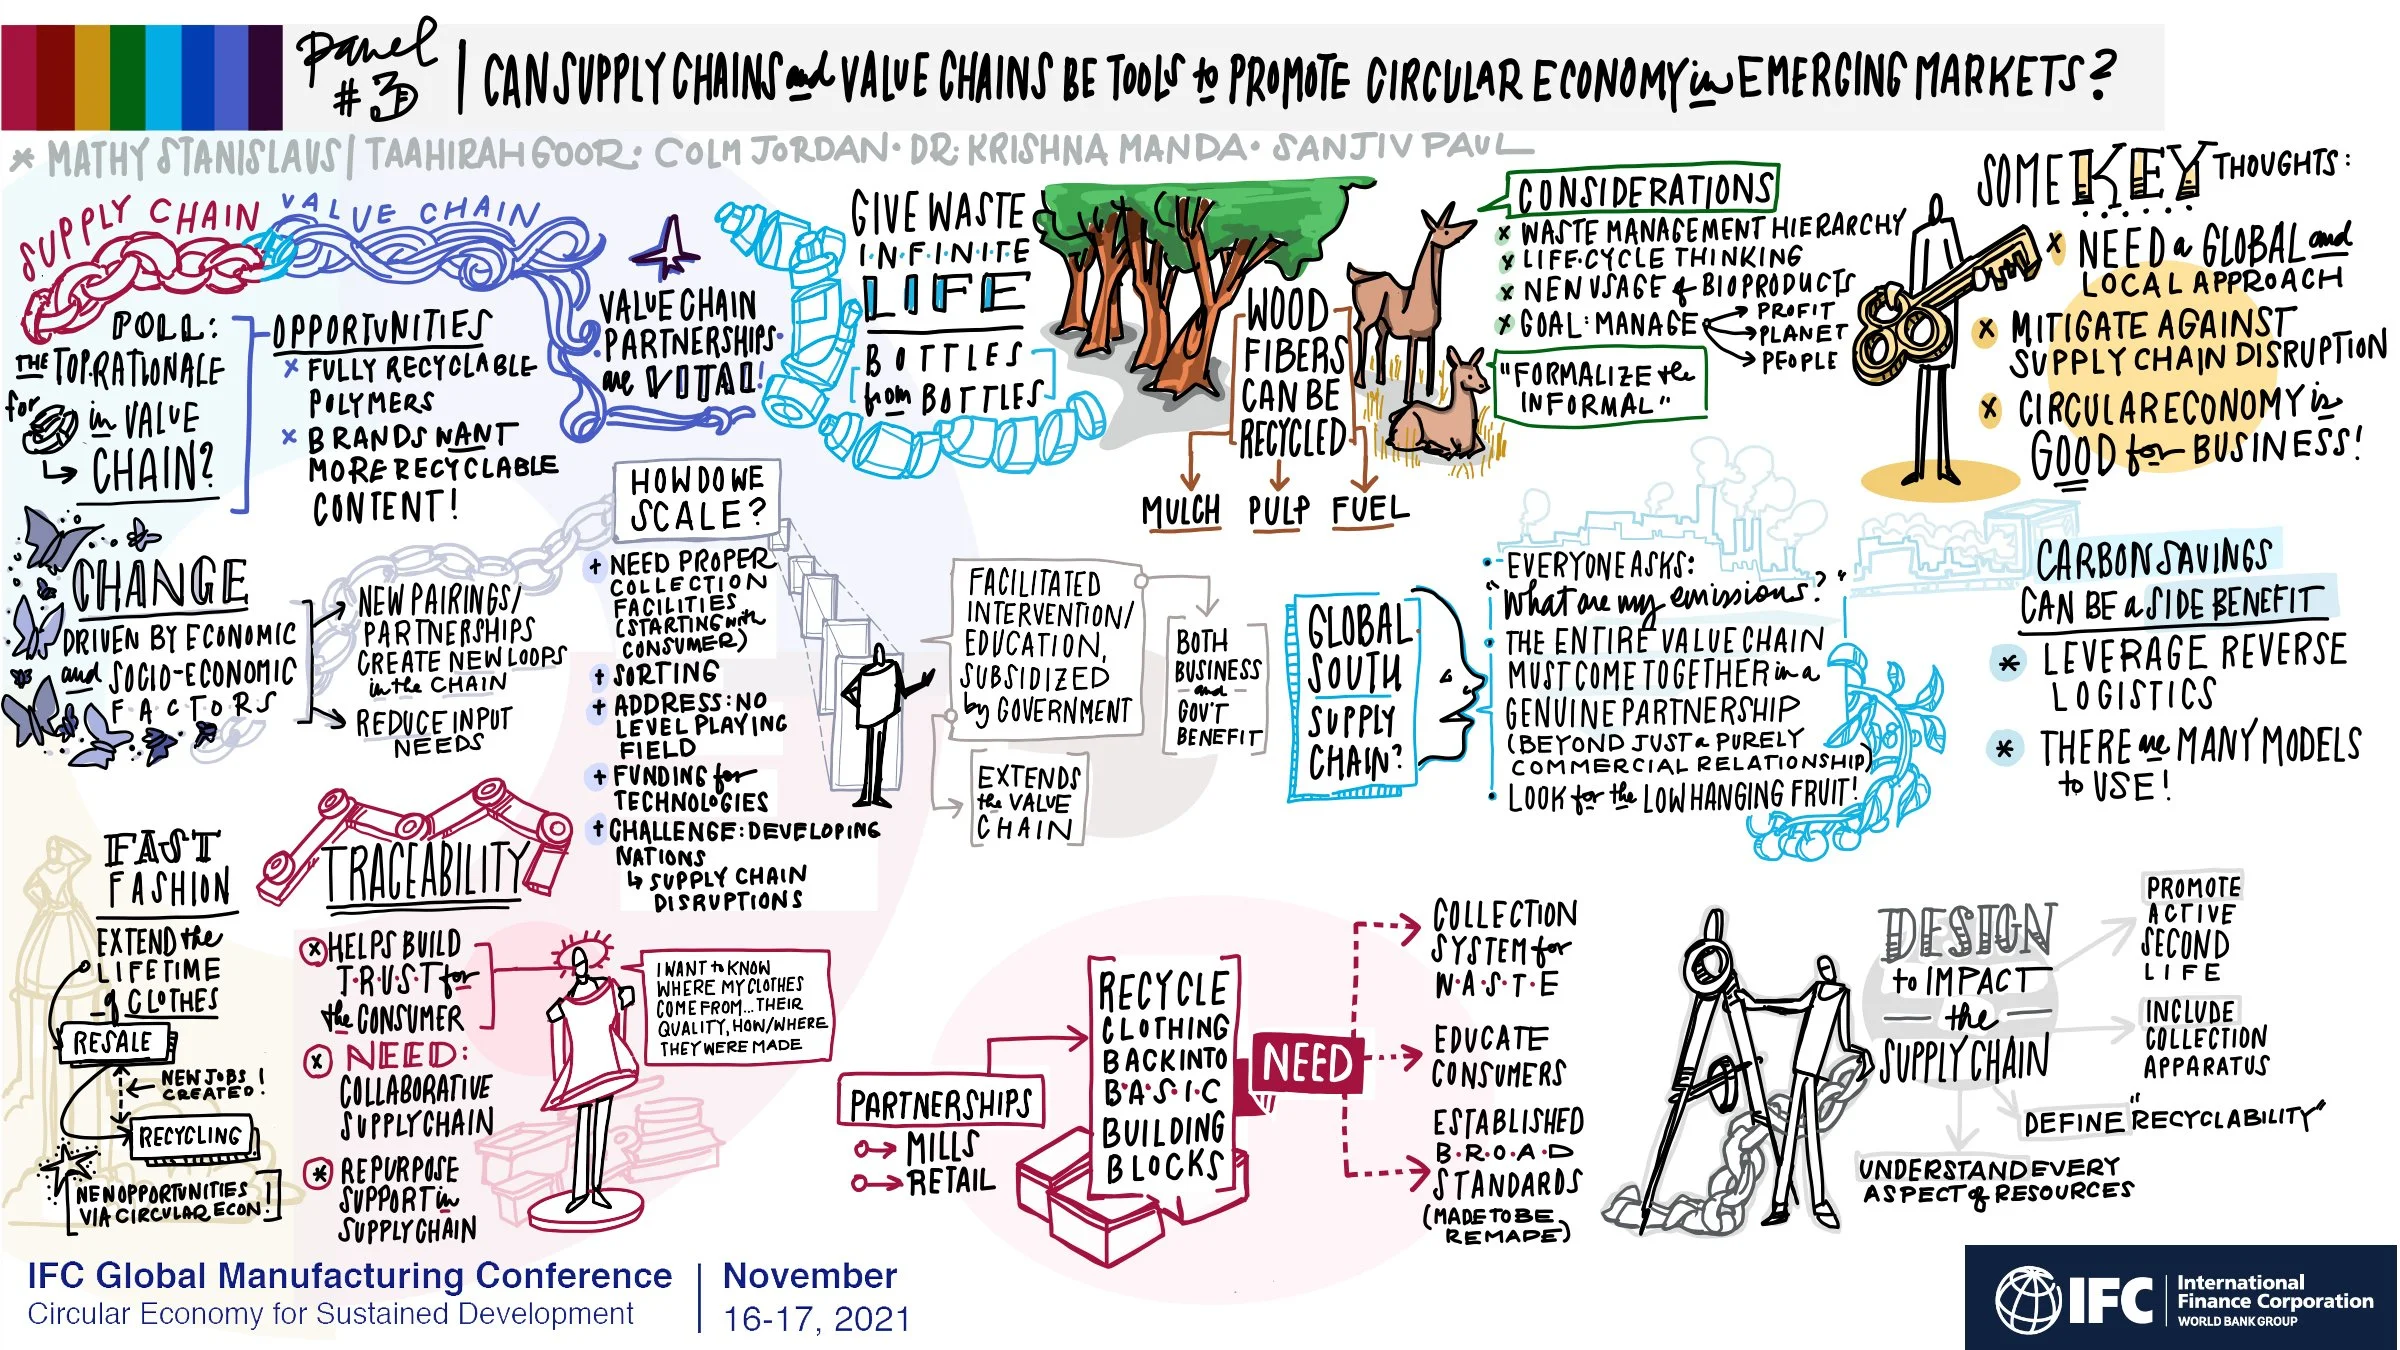 Panel #3
CAN SUPPLY CHAINS and VALUE CHAINS BE TOOLS to PROMOTE CIRCULAR ECONOMY in EMERGING MARKETS?
* MATHY STANISLAUS | TAAHIRAH GOOR · COLM JORDAN · DR. KRISHNA MANDA · SANJIV PAUL
SUPPLY CHAIN
VALUE CHAIN
POLL:
THE TOP RATIONALE
for
in VALUE
CHAIN?
OPPORTUNITIES
x FULLY RECYCLABLE
POLYMERS
x BRANDS WANT
MORE RECYCLABLE
CONTENT!
VALUE CHAIN
PARTNERSHIPS
are VITAL!
GIVE WASTE
I·N·F·I·N·I·T·E
LIFE
BOTTLES
from BOTTLES
WOOD
FIBERS
CAN BE
RECYCLED
MULCH
PULP
FUEL
CONSIDERATIONS
x WASTE MANAGEMENT HIERARCHY
x LIFE-CYCLE THINKING
x NEW USAGE of BIOPRODUCTS
x GOAL: MANAGE
PROFIT
PLANET
PEOPLE
"FORMALIZE the
INFORMAL"
SOME KEY THOUGHTS:
x NEED a GLOBAL and
LOCAL APPROACH
x MITIGATE AGAINST
SUPPLY CHAIN DISRUPTION
x CIRCULAR ECONOMY is
GOOD for BUSINESS!
CHANGE
DRIVEN BY ECONOMIC
and SOCIO-ECONOMIC
FACTORS
NEW PAIRINGS/
PARTNERSHIPS
CREATE NEW LOOPS
in the CHAIN
REDUCE INPUT
NEEDS
HOW DO WE
SCALE?
+ NEED PROPER
COLLECTION
FACILITIES
(STARTING with
CONSUMER)
+ SORTING
+ ADDRESS: NO
LEVEL PLAYING
FIELD
+ FUNDING for
TECHNOLOGIES
+ CHALLENGE: DEVELOPING
NATIONS
↳ SUPPLY CHAIN
DISRUPTIONS
FACILITATED
INTERVENTION/
EDUCATION,
SUBSIDIZED
by GOVERNMENT
BOTH
BUSINESS
and
GOV'T
BENEFIT
EXTENDS
the VALUE
CHAIN
GLOBAL
SOUTH
SUPPLY
CHAIN?
• EVERYONE ASKS:
"What are my emissions?"
• THE ENTIRE VALUE CHAIN
MUST COME TOGETHER in a
GENUINE PARTNERSHIP
(BEYOND JUST a PURELY
COMMERCIAL RELATIONSHIP)
• LOOK for the LOW HANGING FRUIT!
CARBON SAVINGS
CAN BE a SIDE BENEFIT
* LEVERAGE REVERSE
LOGISTICS
* THERE are MANY MODELS
to USE!
FAST
FASHION
EXTEND the
LIFETIME
of CLOTHES
RESALE
NEW JOBS
CREATED!
RECYCLING
NEW OPPORTUNITIES
VIA CIRCULAR ECON!
TRACEABILITY
x HELPS BUILD
T·R·U·S·T for
the CONSUMER
x NEED:
COLLABORATIVE
SUPPLY CHAIN
* REPURPOSE
SUPPORT in
SUPPLY CHAIN
I WANT to KNOW
WHERE MY CLOTHES
COME FROM... THEIR
QUALITY, HOW/WHERE
THEY WERE MADE
PARTNERSHIPS
MILLS
RETAIL
RECYCLE
CLOTHING
BACK INTO
B·A·S·I·C
BUILDING
BLOCKS
NEED
COLLECTION
SYSTEM for
W·A·S·T·E
EDUCATE
CONSUMERS
ESTABLISHED
B·R·O·A·D
STANDARDS
(MADE TO BE
REMADE)
DESIGN
to IMPACT
the
SUPPLY CHAIN
PROMOTE
ACTIVE
SECOND
LIFE
INCLUDE
COLLECTION
APPARATUS
DEFINE "RECYCLABILITY"
UNDERSTAND EVERY
ASPECT of RESOURCES
IFC Global Manufacturing Conference
Circular Economy for Sustained Development
November
16-17, 2021
IFC
International
Finance Corporation
WORLD BANK GROUP